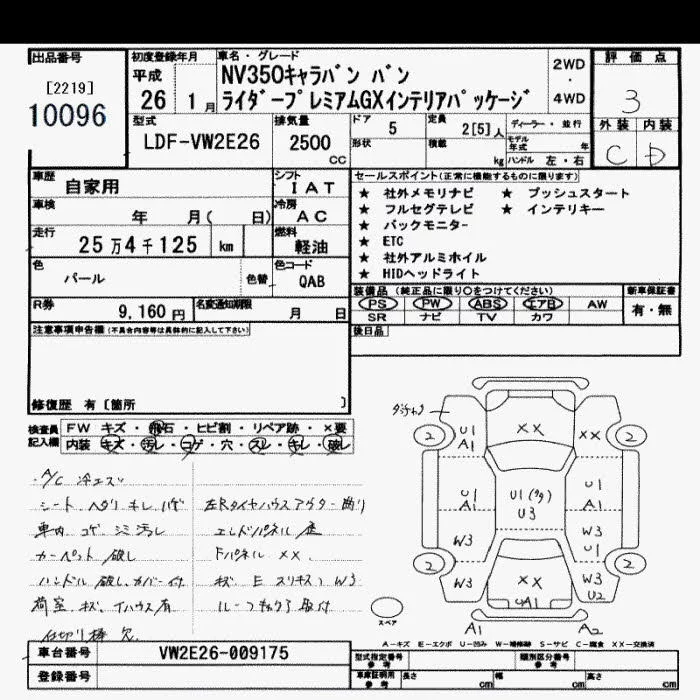 出品番号 初度登録年月 車名・グレード 評価点
[2219]
10096
平成
26 1月
NV350キャラバン バン
ライダープレミアムGXインテリアパッケージ
2WD
・
4WD
3
外装 内装
C D
型式 排気量 ドア 5 定員 2[5]人 ディーラー・並行
LDF-VW2E26 2500 CC
形状 積載 kg モデル年式 年
ハンドル 左・右
車歴 自家用 シフト IAT
車検 年 月( 日) 冷房 AC
走行 25万4千125 km 燃料 軽油
色 パール 色替 色コード QAB
R券 9,160円 名変通知期限 月 日
セールスポイント(正常に機能するものに限ります)
★ 社外メモリナビ ★ プッシュスタート
★ フルセグテレビ ★ インテリキー
★ バックモニター
★ ETC
★ 社外アルミホイル
★ HIDヘッドライト
装備品(純正品に限り○をつけてください) 新車保証書
PS PW ABS エアB AW 有・無
SR ナビ TV カワ
後日品
注意事項申告欄(不具合内容等は具体的に記入して下さい)
修復歴 有〔箇所 〕
検査員記入欄
FW キズ・飛石・ヒビ割・リペア跡・×要
内装 キズ・汚レ・コゲ・穴・スレ・キレ・破レ
A/C 冷エズ
シート ヘタリ キレ ハゲ
車内 コゲ シミ 汚レ
カーペット 破レ
ハンドル 破レ、カバー付
荷室 キズ、
仕切り棒 欠
左Rタイヤハウスアウター曲り
エンドパネル 歪
Fパネル XX.
キズ E スリキズ) W3
ルーフ 取付
2 U1 A1 XX XX 2
U1 A1 U1 U3 U1 A1
W3 W3 U1
2 W3 XX UA1 W3 U2 2
スペア A1 A2
A-キズ E-エクボ U-凹み W-補修跡 S-サビ C-腐食 XX-交換済
車台番号 VW2E26-009175
登録番号
型式指定番号 参考 類別区分番号 参考
車庫証明用 参考 長さ cm 幅 cm 高さ cm